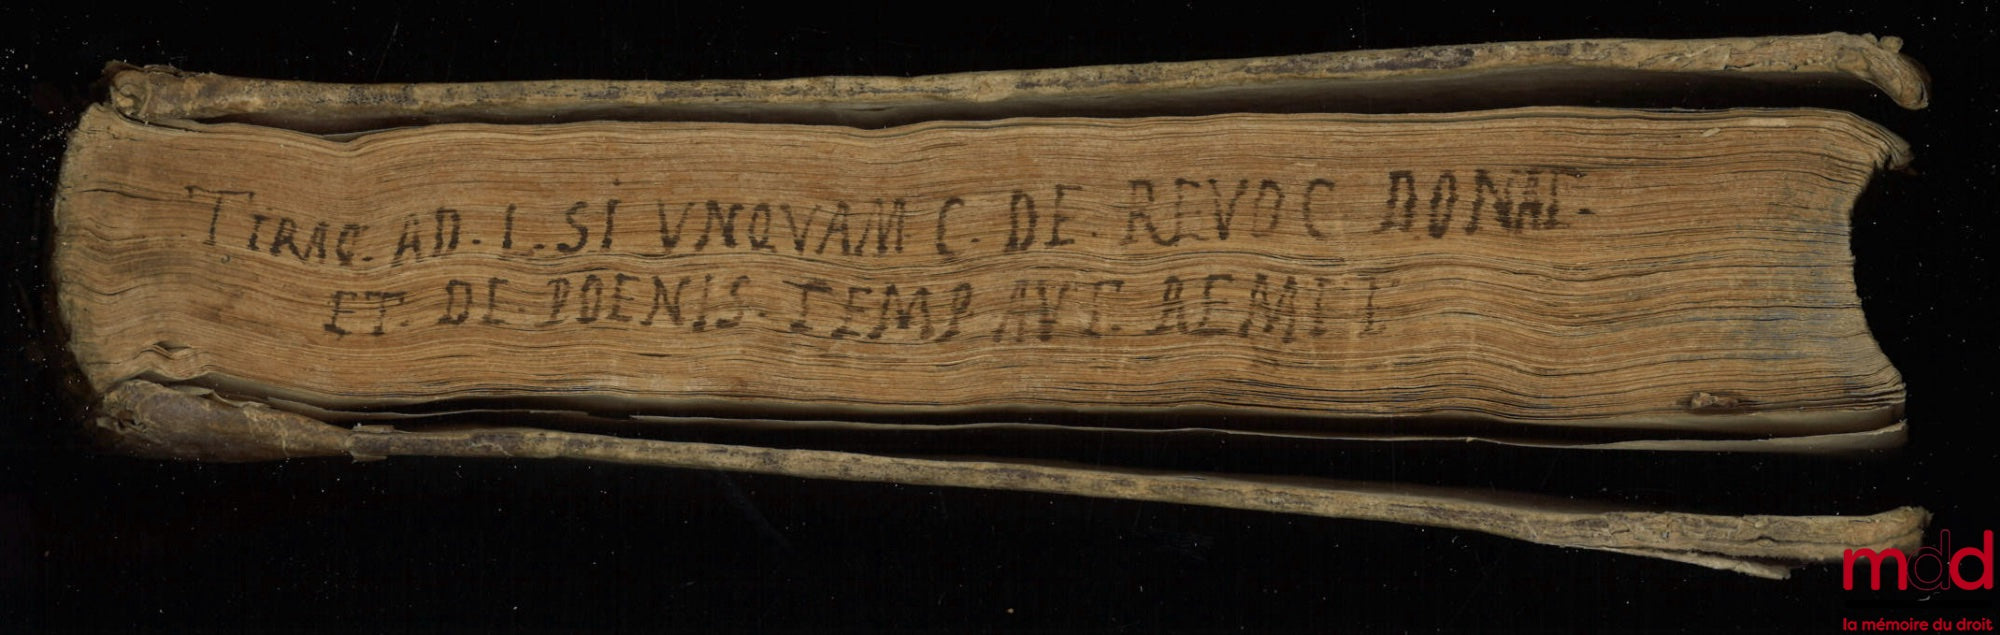 TIRAQ. AD. L. SI VNQVAM C. DE. REVOC DONAT.
ET. DE. POENIS. TEMP. AVT. REMIT
mdd
la mémoire du droit